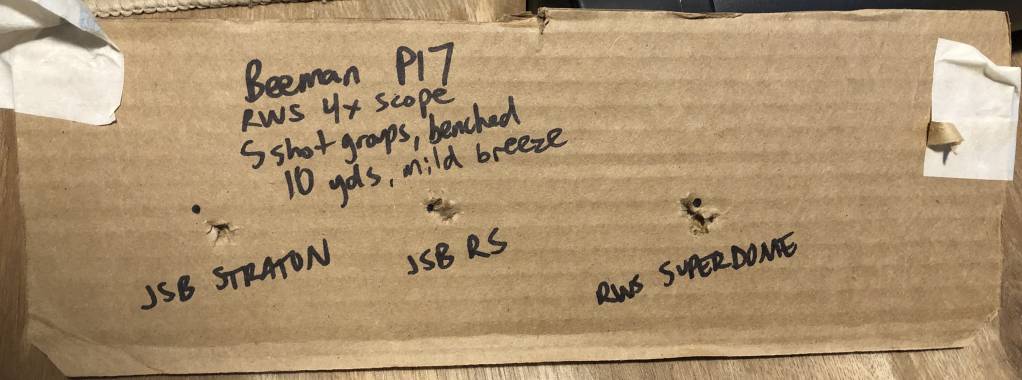 Beeman P17
RWS 4x scope
5 shot groups, benched
10 yds, mild breeze
JSB STRATON
JSB RS
RWS SUPERDOME